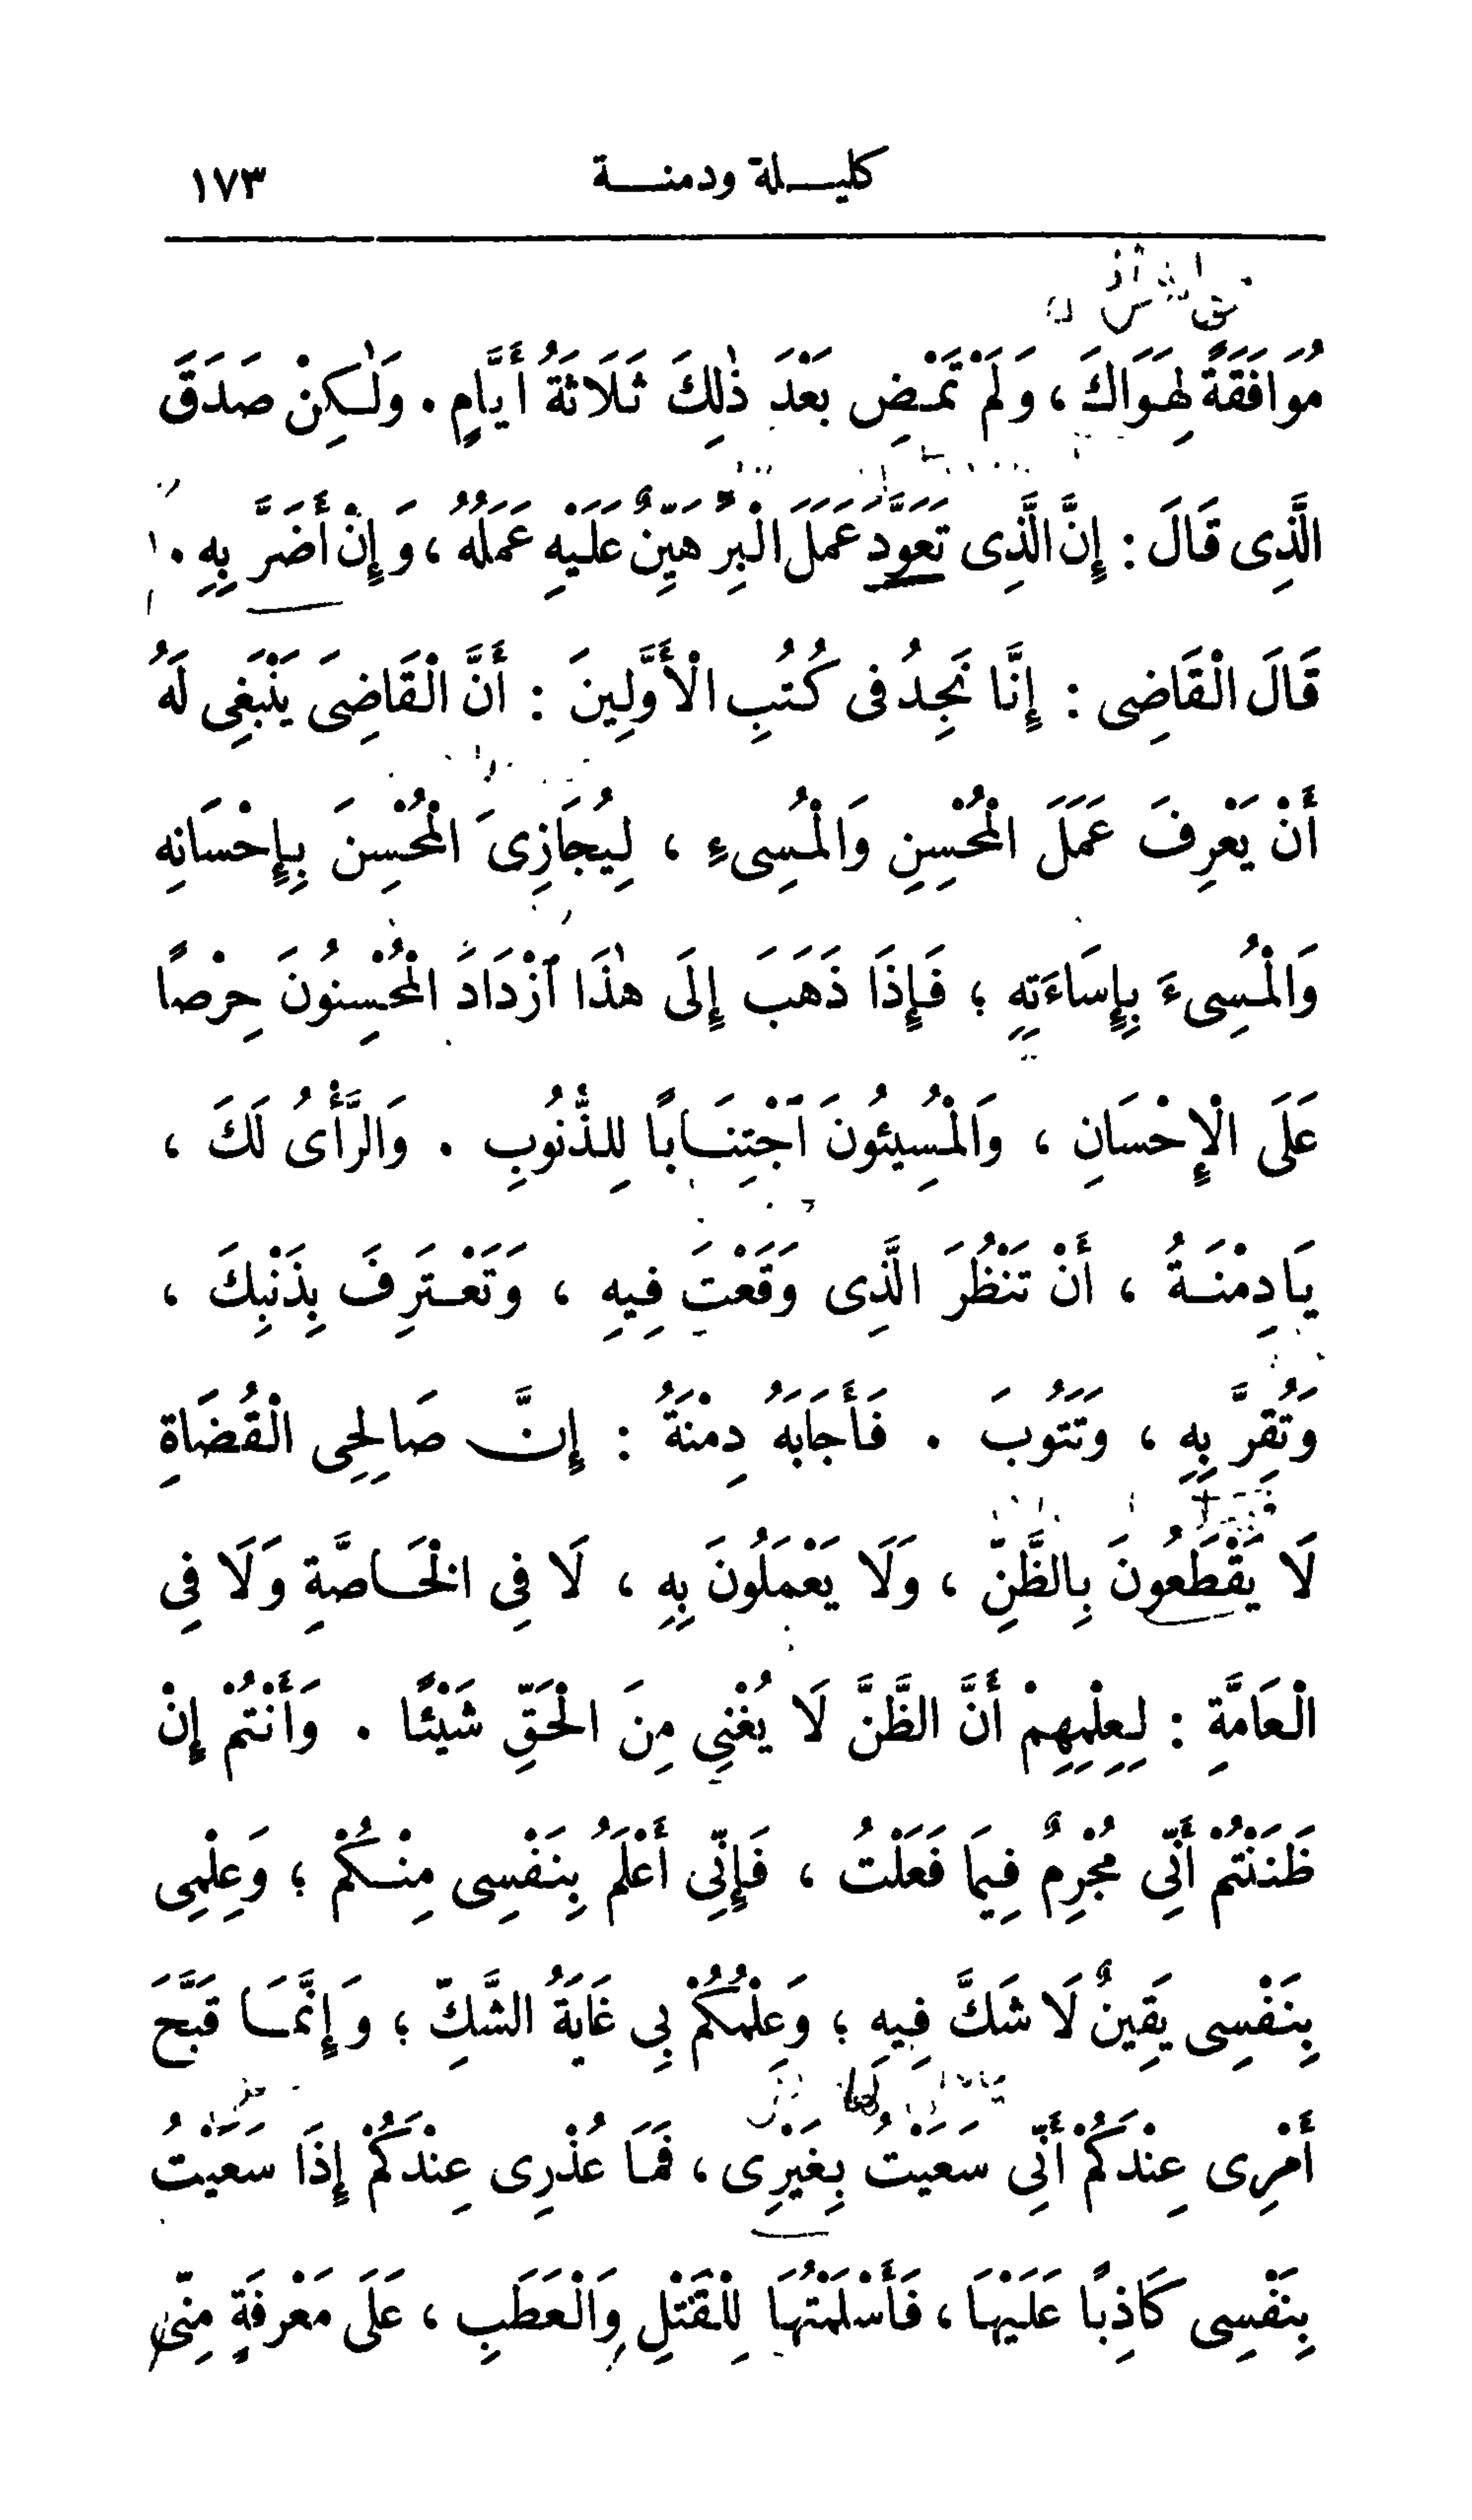 كليلة ودمنة ١٧٣
مُوَافَقَةً لِهَوَاكَ ، وَلَمْ تَمْضِ بَعْدَ ذٰلِكَ ثَلَاثَةُ أَيَّامٍ . وَلٰكِنْ صَدَقَ
الَّذِى قَالَ : إِنَّ الَّذِى تَعَوَّدَ عَمَلَ الْبِرِّ هَيِّنٌ عَلَيْهِ عَمَلُهُ ، وَإِنْ أَضَرَّ بِهِ .
قَالَ الْقَاضِى : إِنَّا نَجِدُ فِى كُتُبِ الْأَوَّلِينَ : أَنَّ الْقَاضِىَ يَنْبَغِى لَهُ
أَنْ يَعْرِفَ عَمَلَ الْمُحْسِنِ وَالْمُسِىءِ ، لِيُجَازِىَ الْمُحْسِنَ بِإِحْسَانِهِ
وَالْمُسِىءَ بِإِسَاءَتِهِ ؛ فَإِذَا ذَهَبَ إِلَى هٰذَا ٱزْدَادَ الْمُحْسِنُونَ حِرْصًا
عَلَى الْإِحْسَانِ ، وَالْمُسِيئُونَ ٱجْتِنَابًا لِلذُّنُوبِ . وَالرَّأْىُ لَكَ ،
يَادِمْنَةُ ، أَنْ تَنْظُرَ الَّذِى وَقَعْتَ فِيهِ ، وَتَعْتَرِفَ بِذَنْبِكَ ،
وَتُقِرَّ بِهِ ، وَتَتُوبَ . فَأَجَابَهُ دِمْنَةُ : إِنَّ صَالِحِى الْقُضَاةِ
لَا يَقْطَعُونَ بِالظَّنِّ ، وَلَا يَعْمَلُونَ بِهِ ، لَا فِى الْخَاصَّةِ وَلَا فِى
الْعَامَّةِ : لِعِلْمِهِمْ أَنَّ الظَّنَّ لَا يُغْنِي مِنَ الْحَقِّ شَيْئًا . وَأَنْتُمْ إِنْ
ظَنَنْتُمْ أَنِّي مُجْرِمٌ فِيمَا فَعَلْتُ ، فَإِنِّى أَعْلَمُ بِنَفْسِى مِنْكُمْ ؛ وَعِلْمِى
بِنَفْسِى يَقِينٌ لَا شَكَّ فِيهِ ؛ وَعِلْمُكُمْ بِي غَايَةُ الشَّكِّ ؛ وَإِنَّمَا قَبَّحَ
أَمْرِى عِنْدَكُمْ أَنِّى سَعَيْتُ بِغَيْرِى ، فَمَا عُذْرِى عِنْدَكُمْ إِذَا سَعَيْتُ
بِنَفْسِى كَاذِبًا عَلَيْهَا ، فَأَسْلَمْتُهَا لِلْقَتْلِ وَالْعَطَبِ ، عَلَى مَعْرِفَةٍ مِنِّى